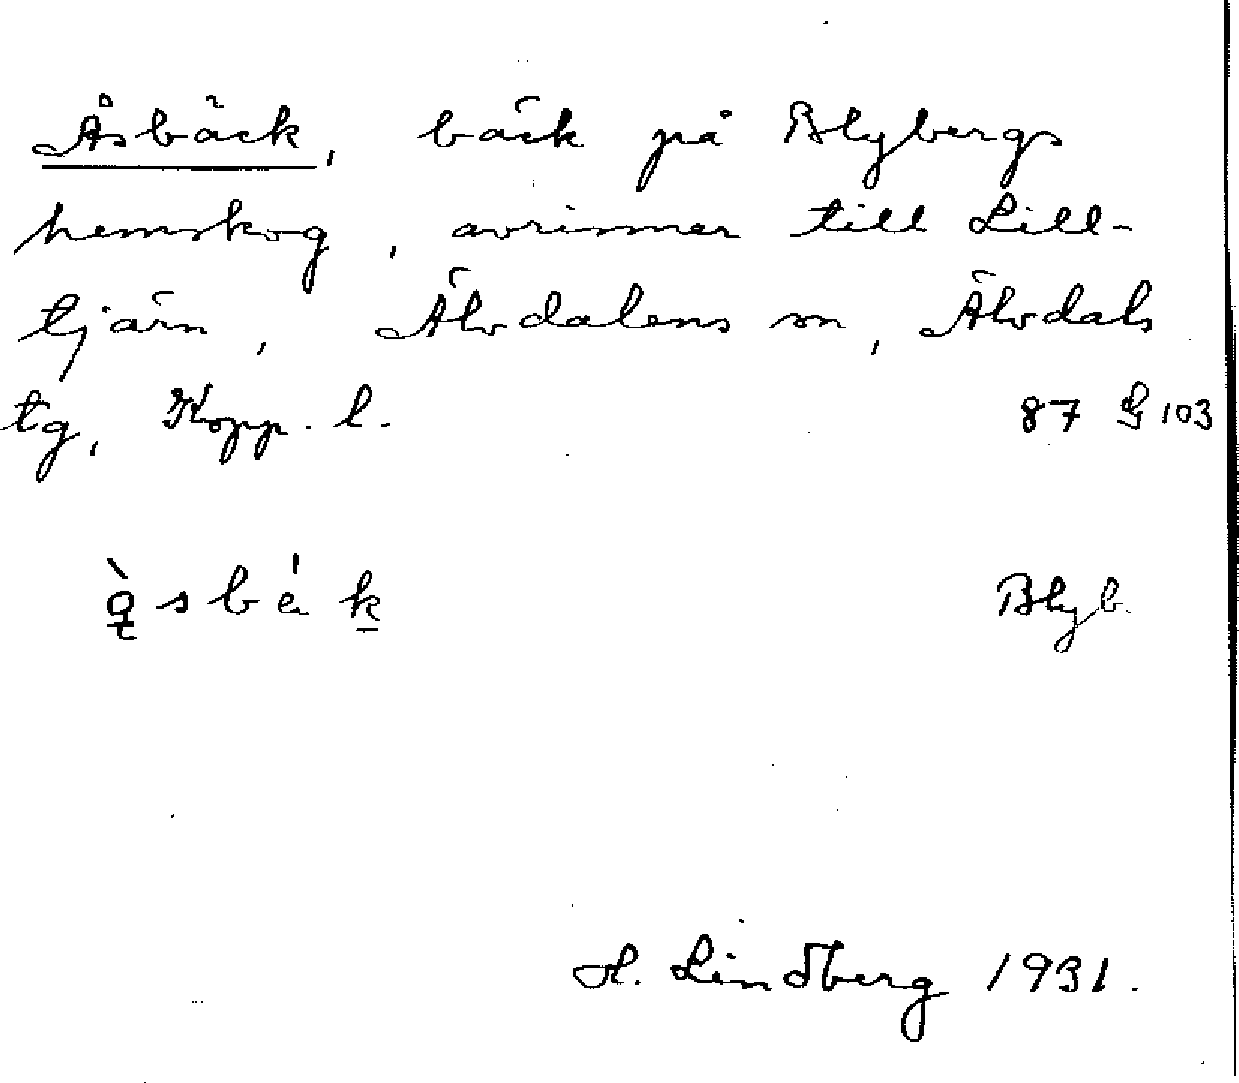 Åsbäck, bäck på Blybergs
hemskog, avrinner till Lill-
tjärn, Älvdalens sn, Älvdals
tg, Kopp. l. 87 G 103
Blyb.
K. Lindberg 1931.